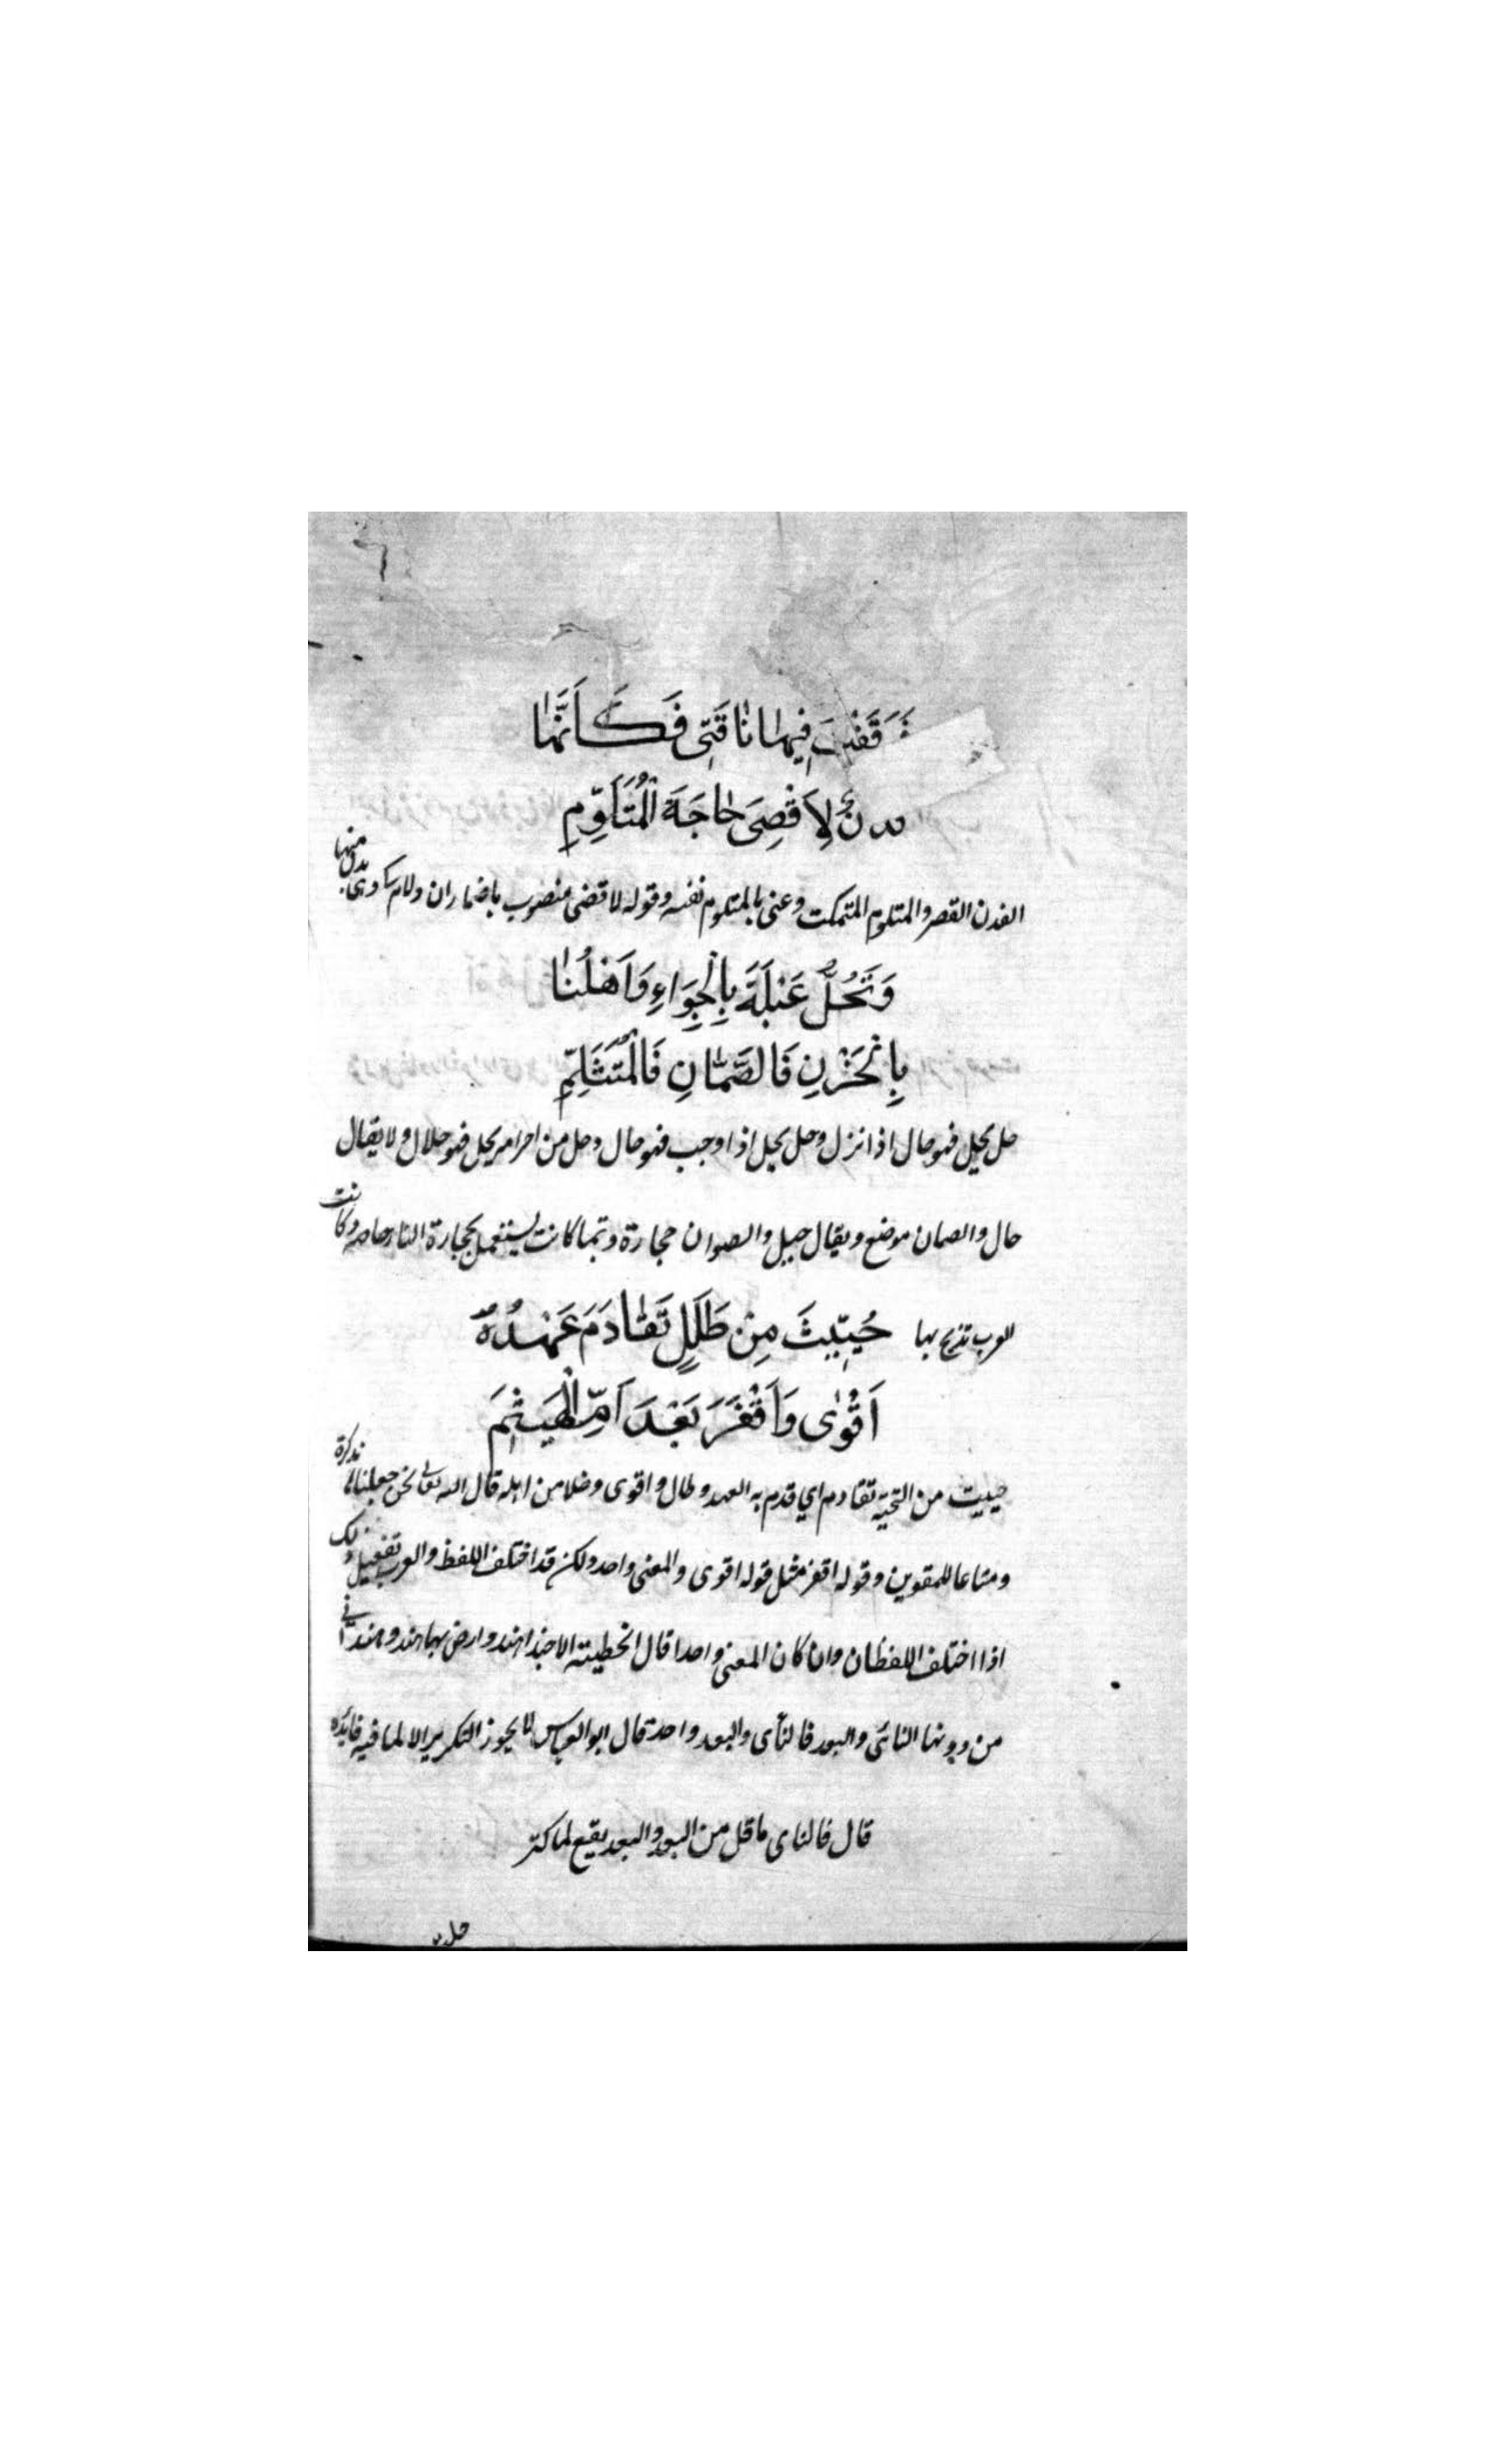 فَوَقَفْتُ فِيهَا نَاقَتِي فَكَأَنَّهَا
فدن لِاَقْضِيَ حَاجَةَ الْمُتَلَوِّمِ
الفدن القصر والمتلوم المتمكث وعنى بالمتلوم نفسه وقوله لاقضى منصوب باضمار ان ولام كى بدل منها
وَتَحُلُّ عَبْلَةُ بِالْجِوَاءِ وَاَهْلُنَا
بِالْحَزْنِ فَالصَّمَّانِ فَالْمُتَثَلِّمِ
حل يحل فهو حال اذا نزل وحل يحل اذا وجب فهو حال وحل من احرامه يحل فهو حلال ولا يقال
حال والصمان موضع ويقال جبل والصوان حجارة وتما كانت يستعمل بحجارة النار خاصه وكانت
العرب تذبح بها
حُيِّيتَ مِنْ طَلَلٍ تَقَادَمَ عَهْدُهُ
اَقْوٰى وَاَقْفَرَ بَعْدَ اُمِّ الْهَيْثَمِ
حييت من التحية تقادم اي قدم به العهد وطال واقوى وخلا من اهله قال الله تعالى نحن جعلناها تذكرة
ومتاعا للمقوين وقوله اقفر مثل قوله اقوى والمعنى واحد ولكن قد اختلف اللفظ والعرب تفعيل ذلك
اذا اختلف اللفظان وان كان المعنى واحدا قال الحطيئة الا حبذا هند وارض بها هند وهند اتى
من دونها النائى والبعد فالنأى والبعد واحد قال ابو العباس لا يجوز التكرير الا لما فيه فائده
قال فالناى ما قل من البعد والبعد يقيع لما كثر